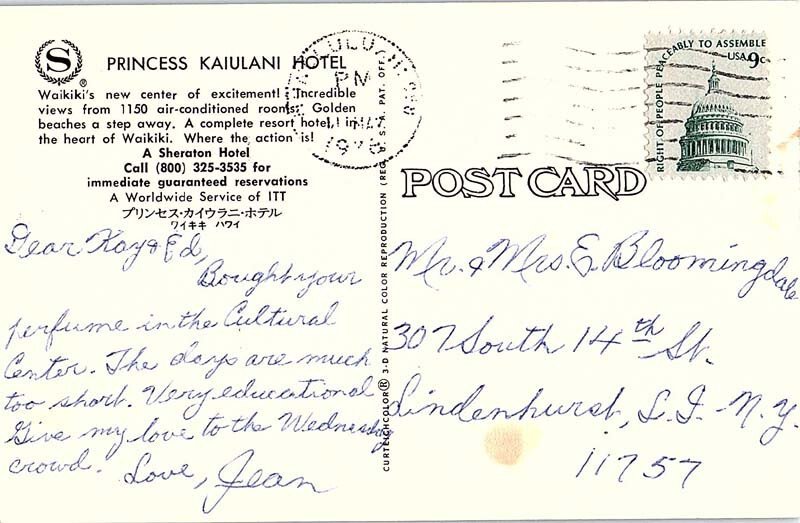 S
®
PRINCESS KAIULANI HOTEL
Waikiki's new center of excitement! Incredible
views from 1150 air-conditioned rooms! Golden
beaches a step away. A complete resort hotel in
the heart of Waikiki. Where the action is!
A Sheraton Hotel
Call (800) 325-3535 for
immediate guaranteed reservations
A Worldwide Service of ITT
プリンセス・カイウラニ・ホテル
ワイキキ ハワイ
Dear Kay & Ed,
Bought your
perfume in the Cultural
Center. The days are much
too short. Very educational
Give my love to the Wednesday
crowd. Love, Jean
CURTEICHCOLOR® 3-D NATURAL COLOR REPRODUCTION (REG. U.S.A. PAT. OFF.)
HONOLULU
PM
RIGHT OF PEOPLE PEACEABLY TO ASSEMBLE
USA 9c
POST CARD
Mr. & Mrs. E. Bloomingdale
307 South 14th St.
Lindenhurst, L.I.-N.Y.
11757